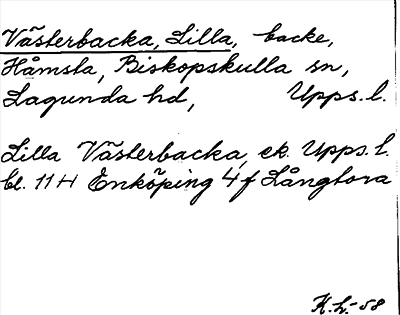 Västerbacka, Lilla, backe,
Håmsta, Biskopskulla sn,
Lagunda hd, Upps. l.
Lilla Västerbacka, ek. Upps. l.
bl. 11H Enköping 4f Långtora
K.h. -58